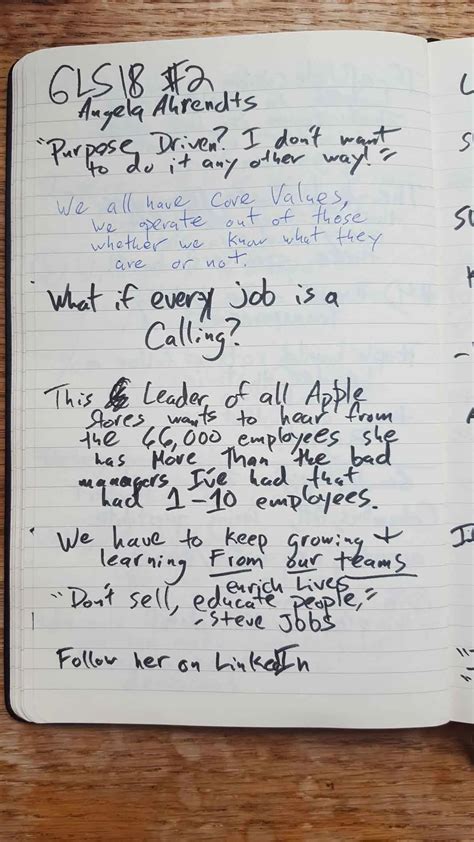 GLS18 #2
Angela Ahrendts
"Purpose Driven? I don't want
to do it any other way!"
We all have Core Values,
we operate out of those
whether we know what they
are or not.
What if every job is a
Calling?
This Leader of all Apple
stores wants to hear from
the 66,000 employees she
has More Than the bad
managers I've had that
had 1-10 employees.
We have to keep growing +
learning From our teams
enrich Lives
"Don't sell, educate people,"
- Steve Jobs
Follow her on LinkedIn